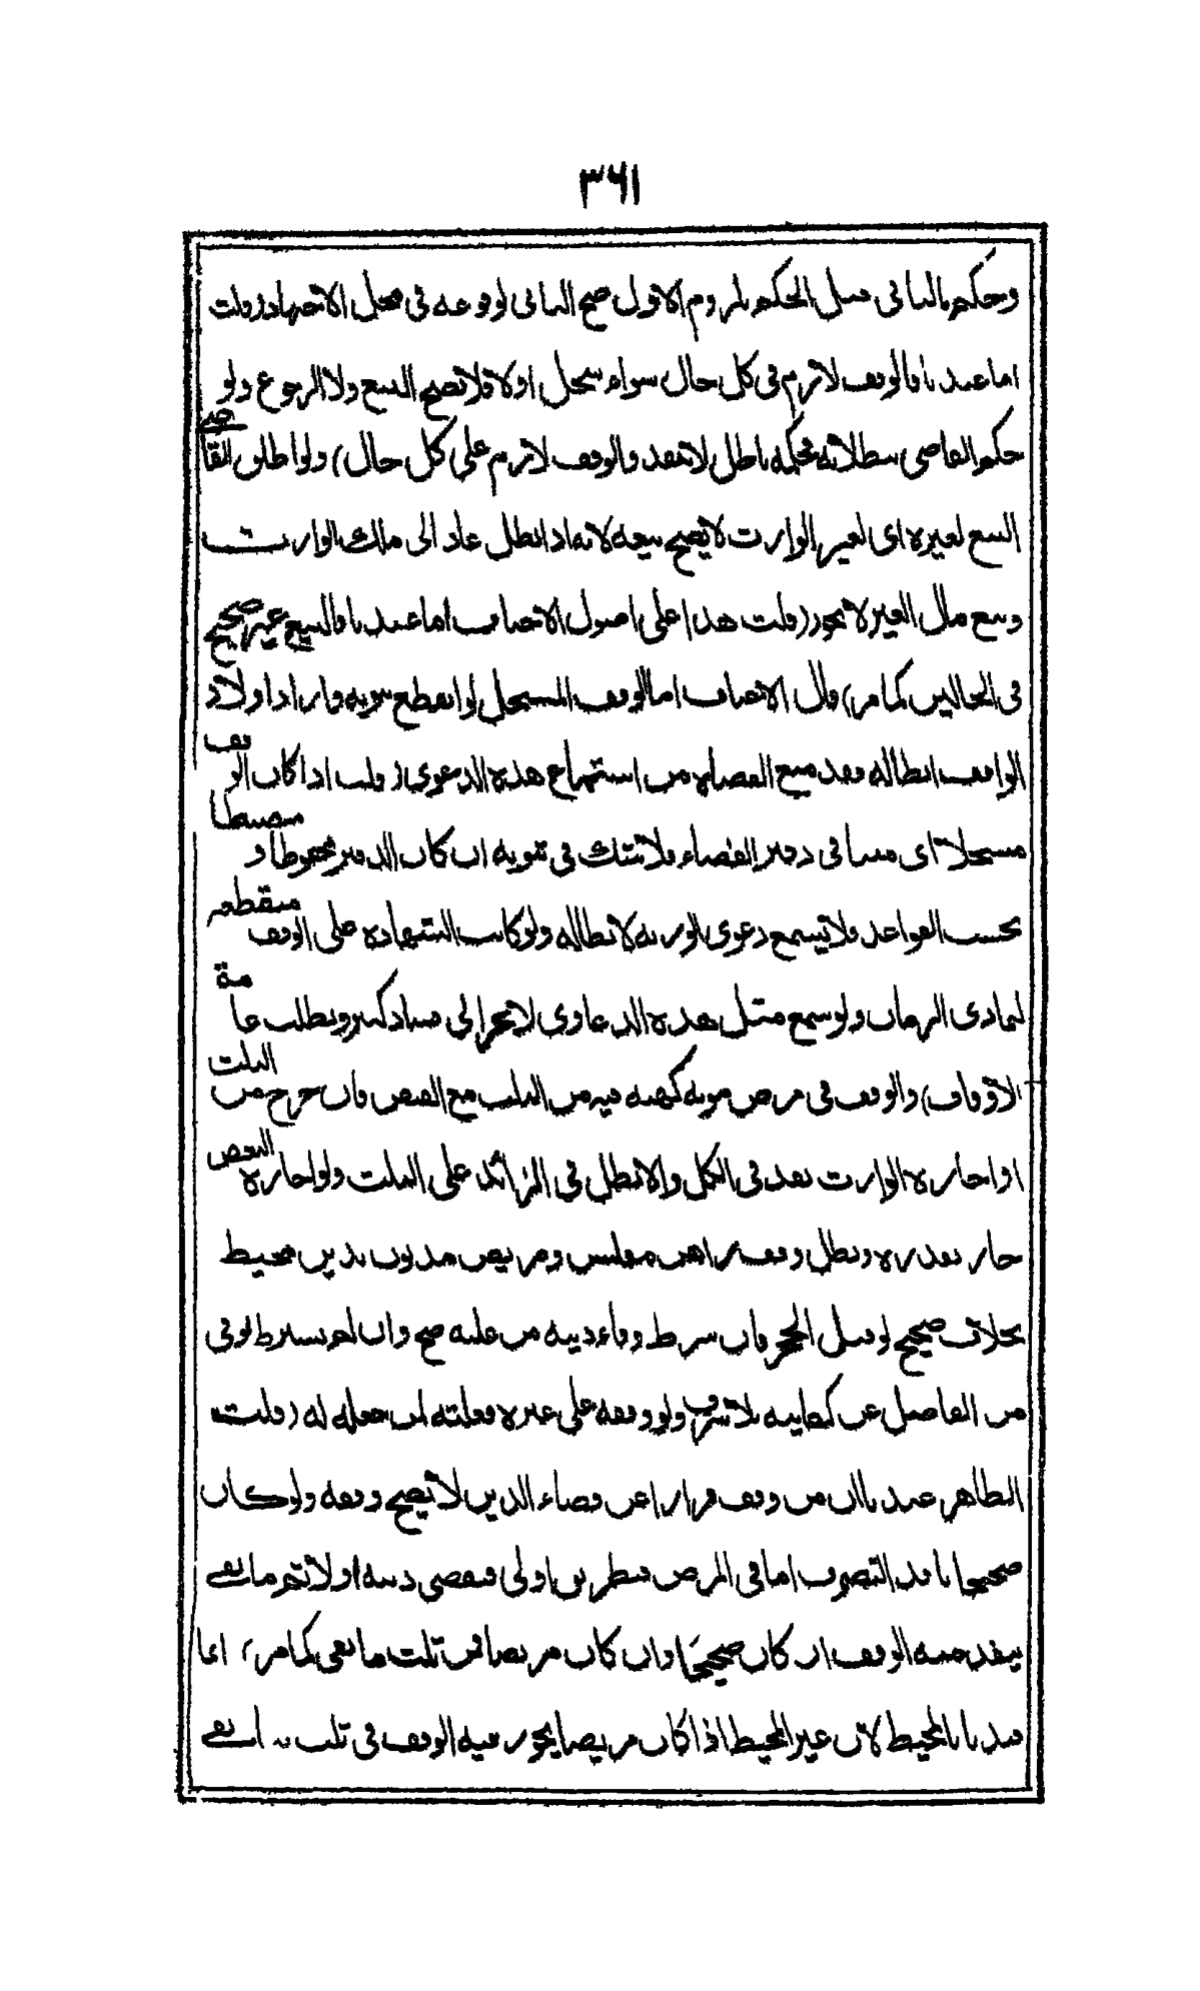 ٣٦١
وحكم بالثاني قبل الحكم بلزوم الاول صح الثاني لوقوعه في محل الاجتهاد (قلت
اما عندنا فالوقف لازم في كل حال سواء سجل اولا فلا يصح البيع ولا الرجوع ولو
حكم القاضي ببطلانه فحكمه باطل لا ينفذ والوقف لازم على كل حال) ولو اطلق القاضي
البيع لغيره اى لغير الوارث لا يصح بيعه لانه اذا بطل عاد الى ملك الوارث
وبيع مال الغير لا يجوز (قلت هذا على اصول الاحناف اما عندنا فالبيع غير صحيح
في الحالين كما مر) قال الاحناف اما الوقف المسجل لو انقطع ثبوته وارادا ولاد
الواقف ابطاله فقد منع القضاة من استماع هذه الدعوى (قلت اذا كان الوقف
مسجلا اى مثبتا في دفتر القضاء فلا شك في ثبوته ان كان الدفتر محفوظا و منضبطا
بحسب القواعد فلا يسمع دعوى الورثة لابطاله ولو كانت الشهادة على الوقف منقطعة
لتمادى الزمان ولو سمع مثل هذه الدعاوى لا نجر الى فساد كبير وبطلت عامة
الاوقاف) والوقف في مرض موته كهبته فيه من الثلث مع القبض فان خرج من الثلث
او اجازه الوارث نفذ في الكل والا بطل في الزائد على الثلث ولو اجازه البعض
جاز بقدره وبطل وقف راهن مفلس ومريض مديون بدين محيط
بخلاف صحيح لو قبل الحجر فان شرط وفاء دينه من غلته صح وان لم يشترط يوفى
من الفاضل عن كفايته بلا سرف ولو وقفه على غيره فغلته لمن جعله له (قلت
الظاهر عندنا ان من وقف فرارا عن قضاء الدين لا يصح وقفه ولو كان
صحيحا نافذ التصرف اما في المرض فبطريق اولى فيقضى دينه اولا ثم ما بقى
ينفذ منه الوقف ان كان صحيحا وان كان مريضا فمن ثلث ما بقى كما مر) انما
قيدنا بالمحيط لان غير المحيط اذا كان مريضا يجوز فيه الوقف في ثلث ما بقى